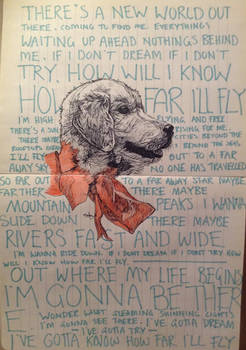 THERE'S A NEW WORLD OUT
THERE. COMING TO FIND ME. EVERYTHING'S
WAITING UP AHEAD NOTHING'S BEHIND
ME. IF I DON'T DREAM IF I DON'T
TRY, HOW WILL I KNOW
HOW FAR I'LL FLY
I'M HIGH FLYING AND FREE
THERE'S A SUN RISING FOR ME.
THERE MAYBE CITIES BEYOND THE
I BEHIND THE SEAS.
I'LL FLY OUT TO A FAR
AWAY SKY NO ONE HAS TRAVELLED
SO FAR OUT TO A FAR AWAY STAR MAYBE
FAR THERE THERE MAYBE
MOUNTAIN PEAKS I WANNA
SLIDE DOWN THERE MAYBE
RIVERS FAST AND WIDE
I'M WANNA RIDE DOWN. IF I DON'T DREAM IF I DON'T TRY HOW
WILL I KNOW HOW FAR I'LL FLY.
OUT WHERE MY LIFE BEGINS
I'M GONNA BE THER
E. WONDER WHAT GLEAMING SHINING LIGHTS
I'M GONNA SEE THERE. I'VE GOTTA DREAM
I'VE GOTTA TRY
I'VE GOTTA KNOW HOW FAR I'LL FLY